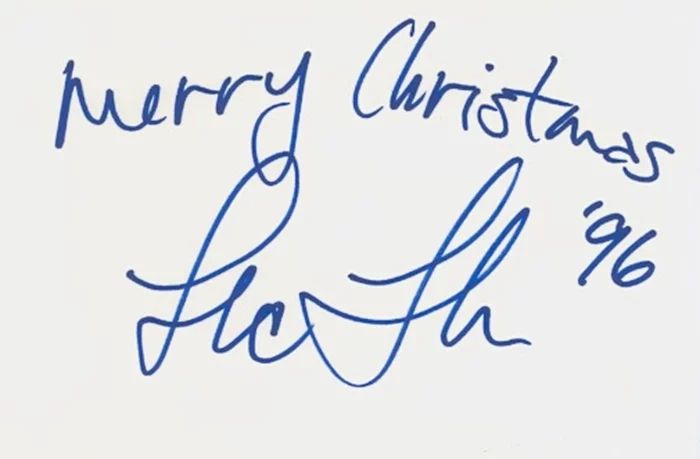 Merry Christmas
'96